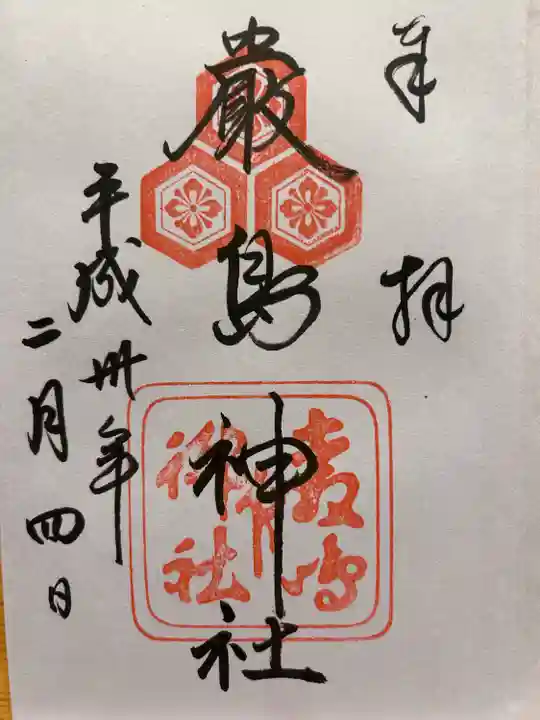 奉拝
厳島神社
平成卅年
二月四日
厳島
神社